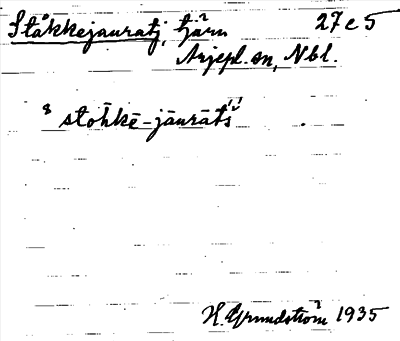 Ståkkejauratj, tjärn 27 e 5
Arjepl. sn, Nbl.
8 stòhkē-jāurāts̀́
H. Grundström 1935